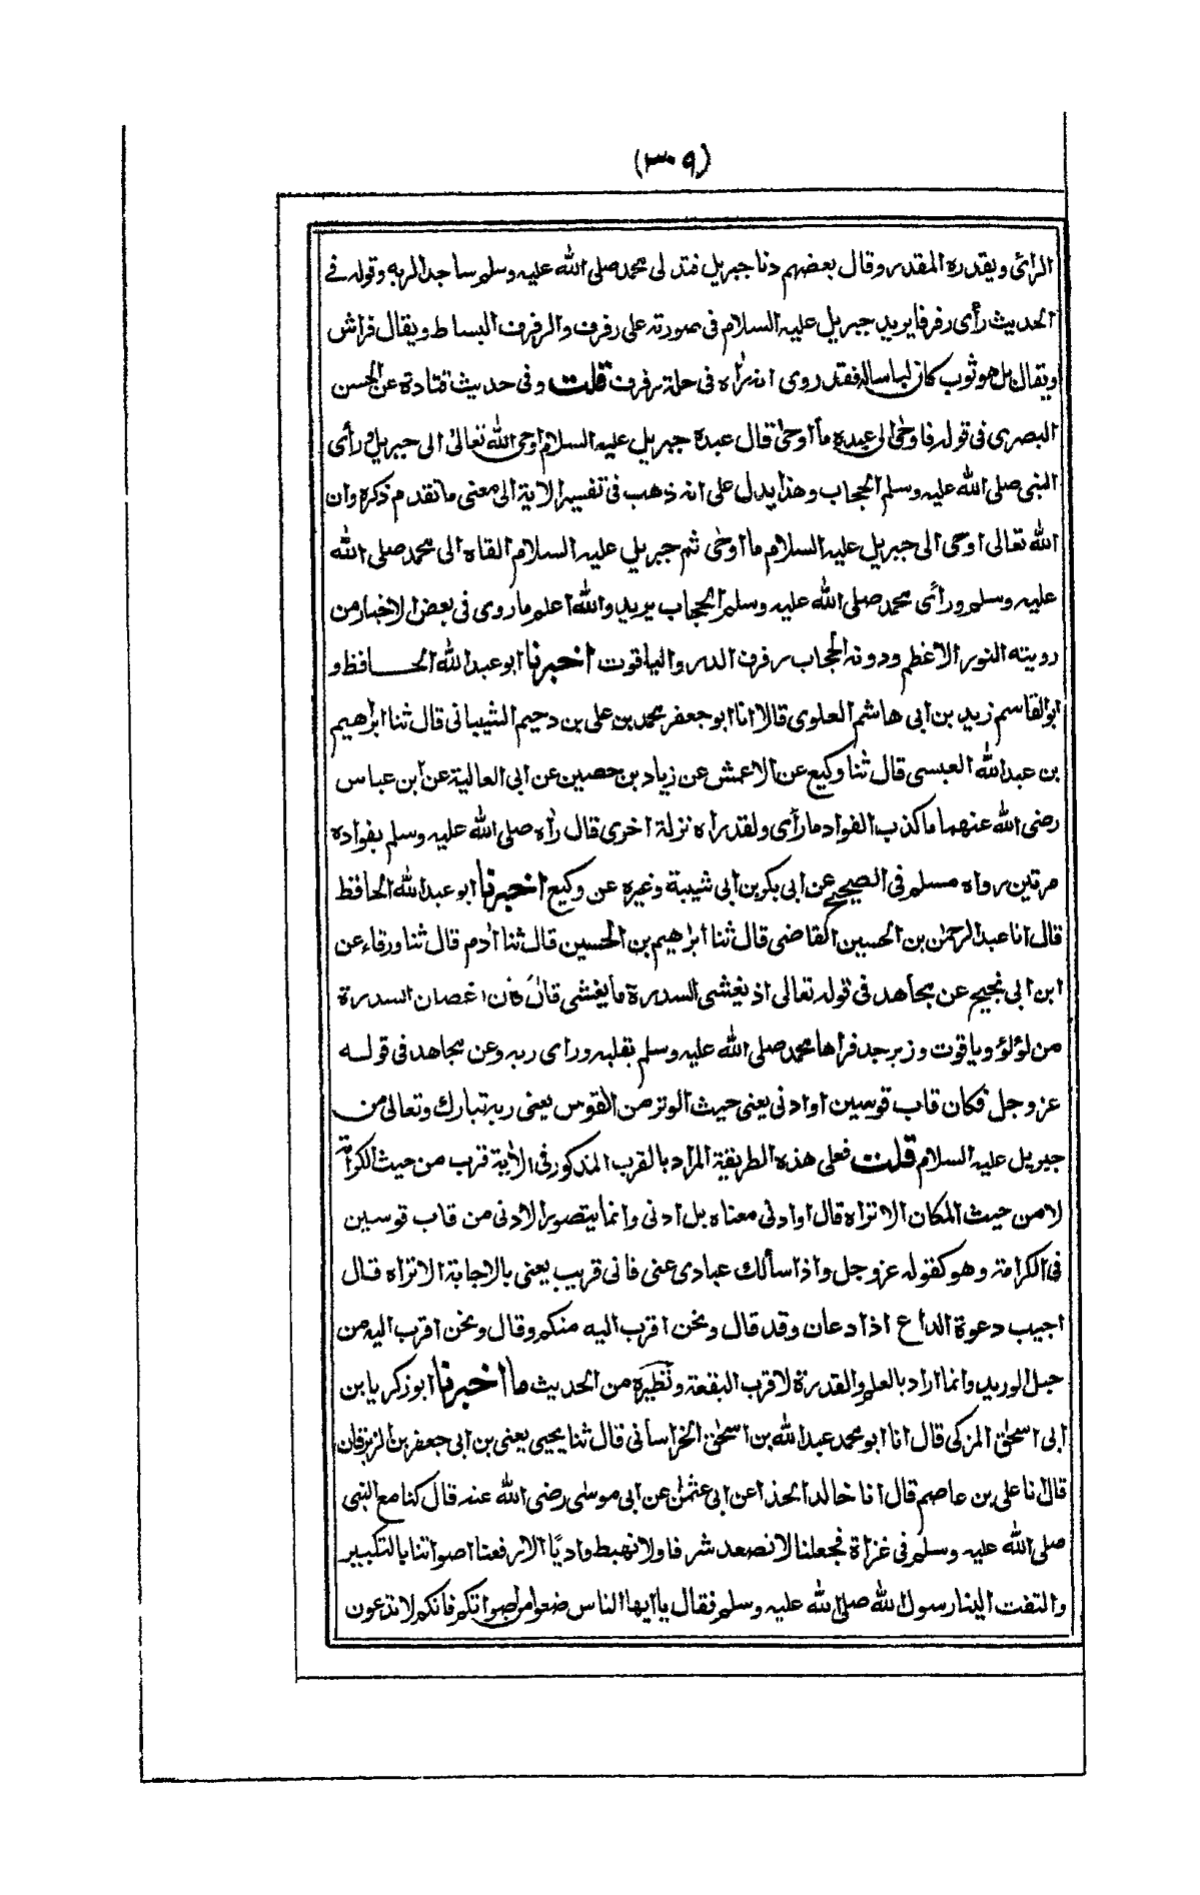 (٣٠٩)
الرائ ويقدره المقدر وقال بعضهم دنا جبريل فتدلى محمد صلى الله عليه وسلم ساجدا لربه وقوله في
الحديث رأى رفرفا يريد جبريل عليه السلام فى صورته على رفرف والرفرف البساط ويقال فراش
ويقال بل هو ثوب كان لباسا له فقد روى انه راه فى حلة رفرف قلت وفى حديث قتادة عن الحسن
البصرى فى قوله فاوحى الى عبده ما اوحى قال عبده جبريل عليه السلام اوحى الله تعالى الى جبريل ورأى
النبى صلى الله عليه وسلم الحجاب وهذا يدل على انه ذهب فى تفسير الاية الى معنى ما تقدم ذكره وان
الله تعالى اوحى الى جبريل عليه السلام ما اوحى ثم جبريل عليه السلام القاه الى محمد صلى الله
عليه وسلم ورأى محمد صلى الله عليه وسلم الحجاب يريد والله اعلم ما روى فى بعض الاخبار من
رويته النور الاعظم ودونه الحجاب رفرف الدر والياقوت اخبرنا ابو عبد الله الحافظ و
ابو القاسم زيد بن ابى هاشم العلوى قالا انا ابو جعفر محمد بن على بن دحيم الشيبانى قال ثنا ابراهيم
بن عبد الله العبسى قال ثنا وكيع عن الاعمش عن زياد بن حصين عن ابى العالية عن ابن عباس
رضى الله عنهما ما كذب الفواد ما رأى ولقد راه نزلة اخرى قال رأه صلى الله عليه وسلم بفواده
مرتين رواه مسلم فى الصحيح عن ابى بكر بن ابى شيبة وغيره عن وكيع اخبرنا ابو عبد الله الحافظ
قال انا عبد الرحمن بن الحسين القاضى قال ثنا ابراهيم بن الحسين قال ثنا ادم قال ثنا ورقاء عن
ابن ابى نجيح عن مجاهد فى قوله تعالى اذ يغشى السدرة ما يغشى قال كان اغصان السدرة
من لؤلؤ وياقوت وزبرجد فراها محمد صلى الله عليه وسلم بقلبه وراى ربه وعن مجاهد فى قوله
عز وجل فكان قاب قوسين او ادنى يعنى حيث الوتر من القوس يعنى ربه تبارك وتعالى من
جبريل عليه السلام قلت فعلى هذه الطريقة المراد بالقرب المذكور فى الاية قرب من حيث الكرامة
لا من حيث المكان الا تراه قال او ادنى معناه بل ادنى وانما يتصور الادنى من قاب قوسين
فى الكرامة وهو كقوله عز وجل واذا سألك عبادى عنى فانى قريب يعنى بالاجابة الا تراه قال
اجيب دعوة الداع اذا دعان وقد قال ونحن اقرب اليه منكم وقال ونحن اقرب اليه من
حبل الوريد وانما اراد بالعلم والقدرة لا قرب البقعة ونظيره من الحديث ما اخبرنا ابو زكريا بن
ابى اسحق المزكى قال انا ابو محمد عبد الله بن اسحق الخراسانى قال ثنا يحيى يعنى بن ابى جعفر بن الزبرقان
قال انا على بن عاصم قال انا خالد الحذا عن ابى عثمن عن ابى موسى رضى الله عنه قال كنا مع النبى
صلى الله عليه وسلم فى غزاة فجعلنا لا نصعد شرفا ولا نهبط واديًا الا رفعنا اصواتنا بالتكبير
والتفت الينا رسول الله صلى الله عليه وسلم فقال ياايها الناس ضعوا من اصواتكم فانكم لا تدعون